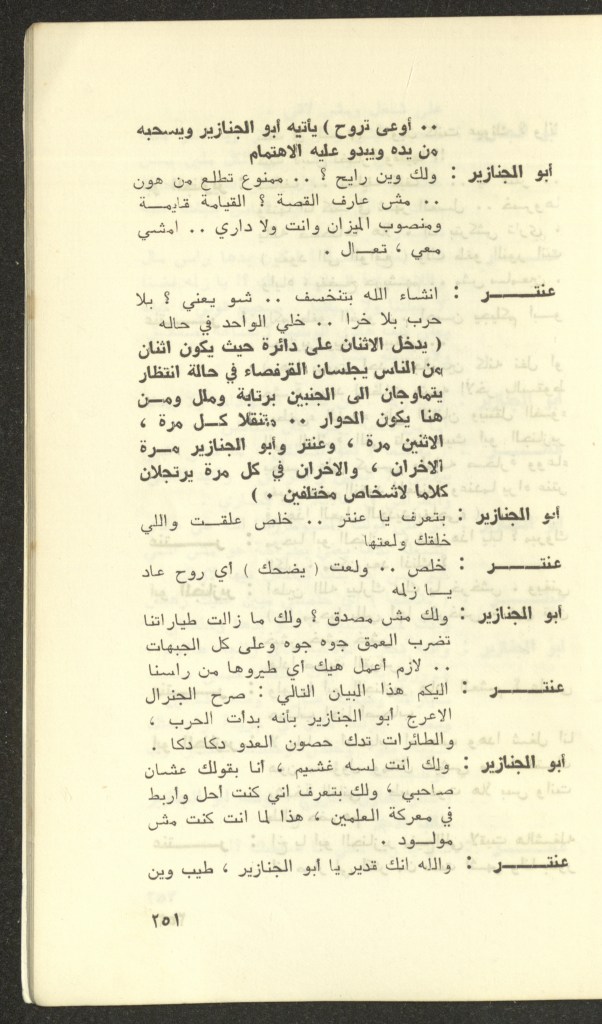 .. أوعى تروح ) يأتيه أبو الجنازير ويسحبه
من يده ويبدو عليه الاهتمام
أبو الجنازير : ولك وين رايح ؟ .. ممنوع تطلع من هون
.. مش عارف القصة ؟ القيامة قايمـــة
ومنصوب الميزان وانت ولا داري .. امشي
معي ، تعـــال .
عنتـــــــر : انشاء الله بتنخسف .. شو يعني ؟ بلا
حرب بلا خرا .. خلي الواحد في حاله
( يدخل الاثنان على دائرة حيث يكون اثنان
من الناس يجلسان القرفصاء في حالة انتظار
يتماوجان الى الجنبين برتابة وملل ومــن
هنا يكون الحوار .. متنقلا كــل مرة ،
الاثنين مرة ، وعنتر وأبو الجنازير مــرة
الاخران ، والاخران في كل مرة يرتجلان
كلاما لاشخاص مختلفين . )
أبو الجنازير : بتعرف يا عنتر .. خلص علقــت واللي
خلقك ولعتها
عنتـــــــر : خلص .. ولعت ( يضحك ) أي روح عاد
يـــا زلمه
أبو الجنازير : ولك مش مصدق ؟ ولك ما زالت طياراتنا
تضرب العمق جوه جوه وعلى كل الجبهات
.. لازم أعمل هيك أي طيروها من راسنا
عنتـــــــر : اليكم هذا البيان التالي : صرح الجنرال
الاعرج أبو الجنازير بأنه بدأت الحرب ،
والطائرات تدك حصون العدو دكا دكا .
أبو الجنازير : ولك انت لسه غشيم ، أنا بقولك عشان
صاحبي ، ولك بتعرف اني كنت أحل واربط
في معركة العلمين ، هذا لما انت كنت مش
مولــود .
عنتـــــــر : والله انك قدير يا أبو الجنازير ، طيب وين
٢٥١